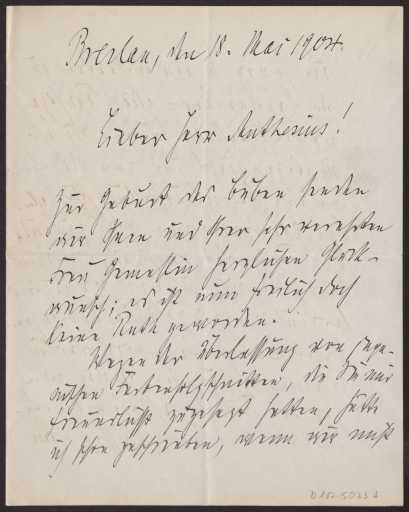 Breslau, den 18. Mai 1904.
Lieber Herr Muthesius!
Zur Geburt des Buben senden
wir Ihnen und Ihrer sehr verehrten
Frau Gemahlin herzlichen Glück-
wunsch; es ist nun freilich doch
keine Ruth geworden.
Wegen der Überlassung von japa-
nischen Farbenholzschnitten, die Sie mir
freundlichst zugesagt hatten, hätte
ich schon geschrieben, wenn wir nicht